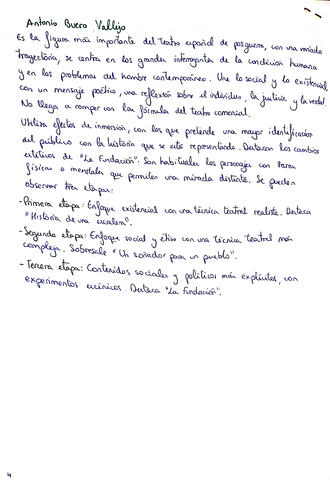 Antonio Buero Vallejo
Es la figura más importante del teatro español de posguerra, con una variada
trayectoria, se centra en los grandes interrogantes de la condición humana
y en los problemas del hombre contemporáneo. Une lo social y lo existencial
con un mensaje poético, una reflexión sobre el individuo, la justicia y la verdad.
No llega a romper con las fórmulas del teatro comercial.
Utiliza efectos de inmersión, con los que pretende una mayor identificación
del público con la historia que se está representando. Destacan los cambios
de "La Fundación". Son habituales los personajes con taras
físicas o mentales que permiten una mirada distinta. Se pueden
observar tres etapas:
-Primera etapa: Enfoque existencial con una técnica teatral realista. Destaca
"Historia de una escalera".
-Segunda etapa: Enfoque social y ético con una técnica teatral más
compleja. Sobresale "Un soñador para un pueblo".
-Tercera etapa: Contenidos sociales y políticos más explícitos, con
experimentos escénicos. Destaca "La Fundación".
4